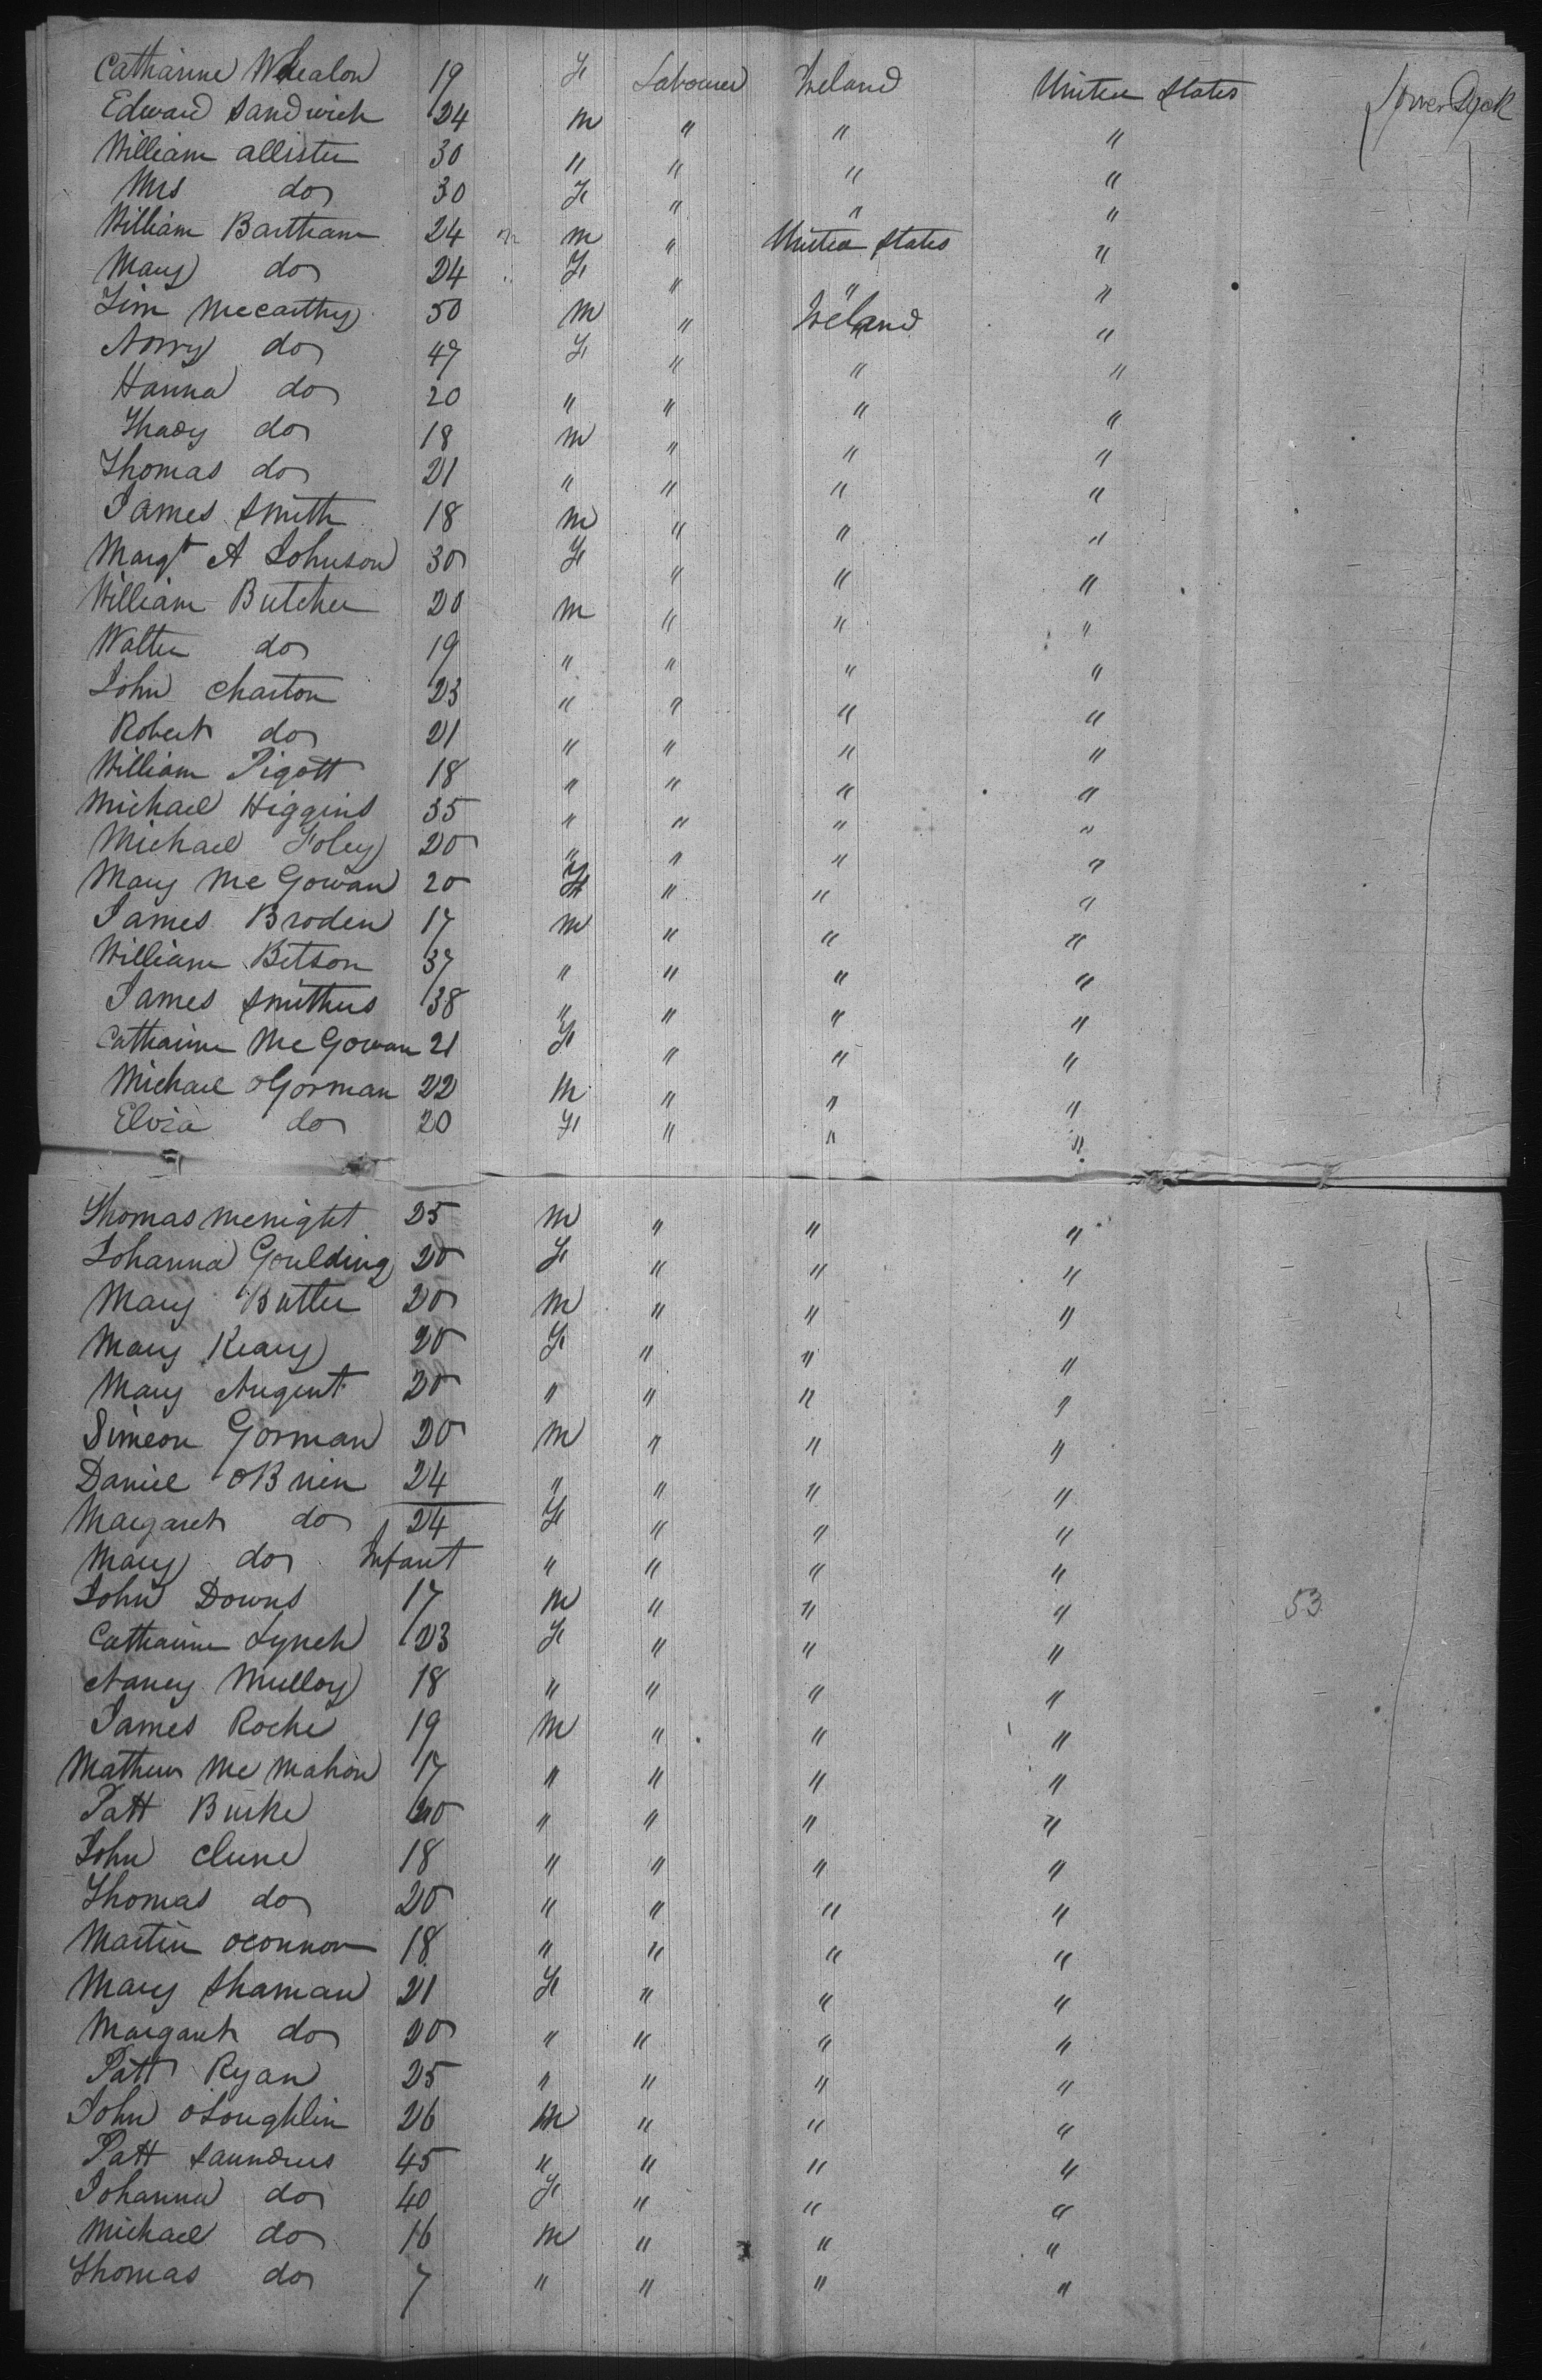 Catharine Whealon 19 F Labourer Ireland United States Lower Deck
Edward Sandwich 24 m " " "
William Allister 30 " " " "
Mrs do 30 F " " "
William Bartham 24 m " United States "
Mary do 24 F " " "
Tim McCarthy 50 m " Ireland "
Norry do 47 F " " "
Hanna do 20 " " " "
Thady do 18 m " " "
Thomas do 21 " " " "
James Smith 18 m " " "
Margt A Johnson 30 F " " "
William Butcher 20 m " " "
Walter do 19 " " " "
John Charton 23 " " " "
Robert do 21 " " " "
William Pigott 18 " " " "
Michael Higgins 35 " " " "
Michael Foley 20 " " " "
Mary McGowan 20 F " " "
James Broden 17 m " " "
William Betson 37 " " " "
James Smithers 38 " " " "
Catharine McGowan 21 F " " "
Michael OGorman 22 m " " "
Eliza do 20 F " " "
Thomas McNight 25 m " " "
Johanna Goulding 20 F " " "
Mary Butler 20 m " " "
Mary Keary 20 F " " "
Mary Nugent 20 " " " "
Simeon Gorman 20 m " " "
Daniel OBrien 24 " " " "
Margaret do 24 F " " "
Mary do Infant " " " "
John Downs 17 m " " " 53
Catharine Lynch 23 F " " "
Nancy Mulloy 18 " " " "
James Roche 19 m " " "
Mathew McMahon 17 " " " "
Patt Burke 20 " " " "
John Clune 18 " " " "
Thomas do 20 " " " "
Martin OConnor 18 " " " "
Mary Shaman 21 F " " "
Margaret do 20 " " " "
Patt Ryan 25 " " " "
John OLoughlin 26 m " " "
Patt Saunders 45 " " " "
Johanna do 40 F " " "
Michael do 16 m " " "
Thomas do 7 " " " "